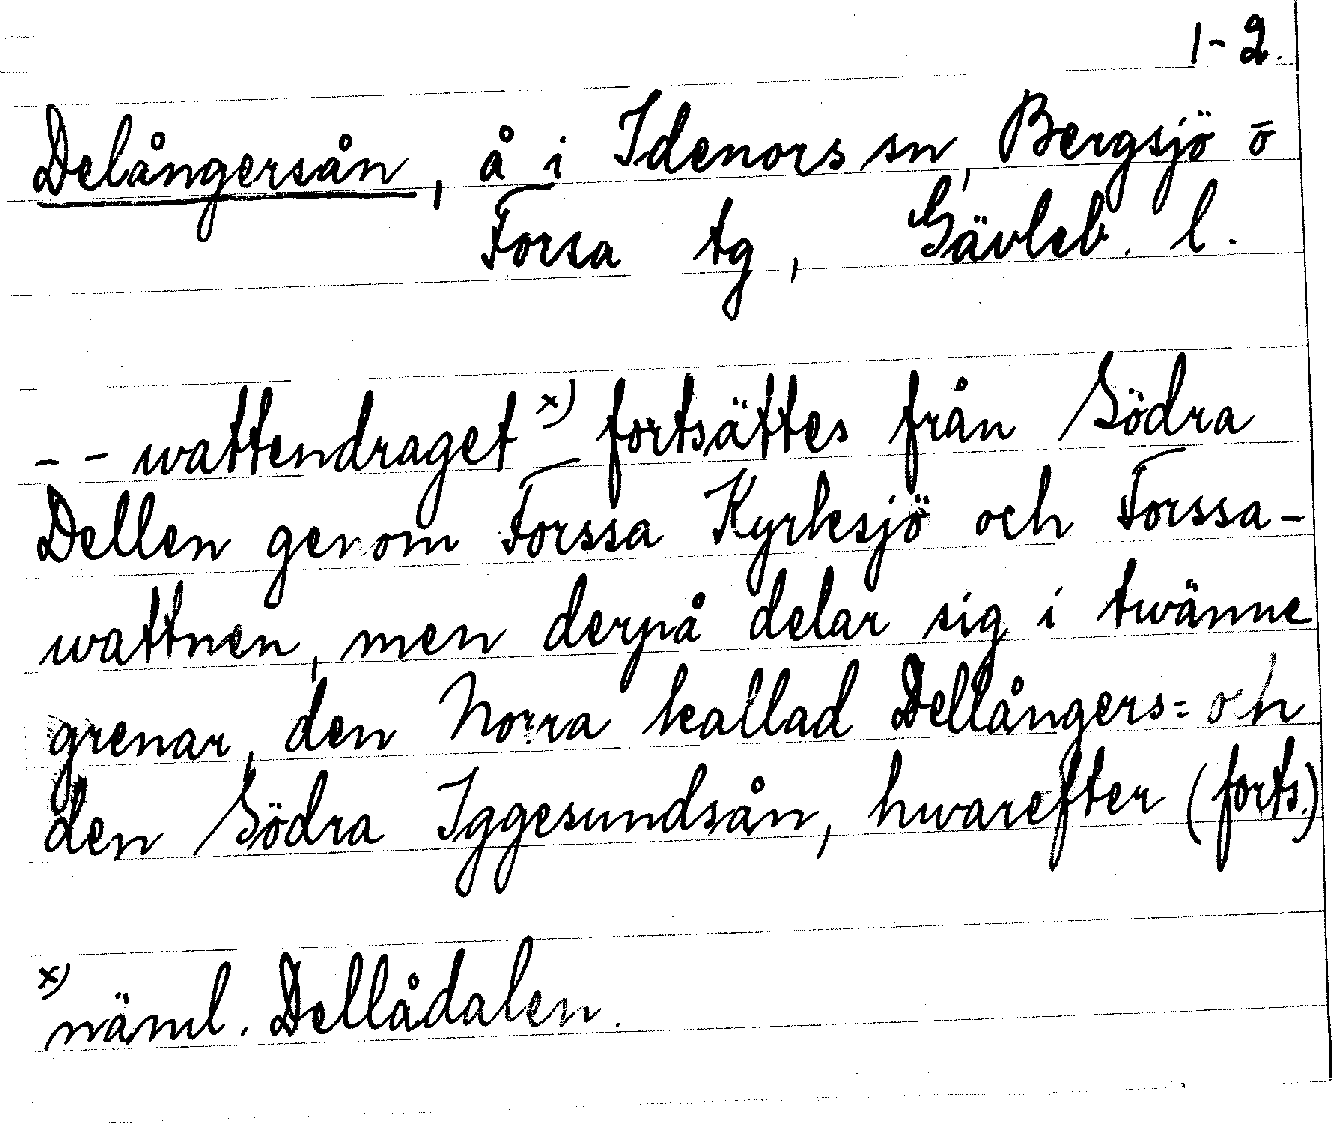 1-2.
Delångersån, å i Idenors sn, Bergsjö o
Forsa tg, Gävleb. l.
-- wattendraget x) fortsättes från Södra
Dellen genom Forssa Kyrksjö och Forssa-
wattnen, men derpå delar sig i twänne
grenar, den Norra kallad Dellångers= och
den Södra Iggesundsån, hwarefter (forts.)
x) näml. Dellådalen.